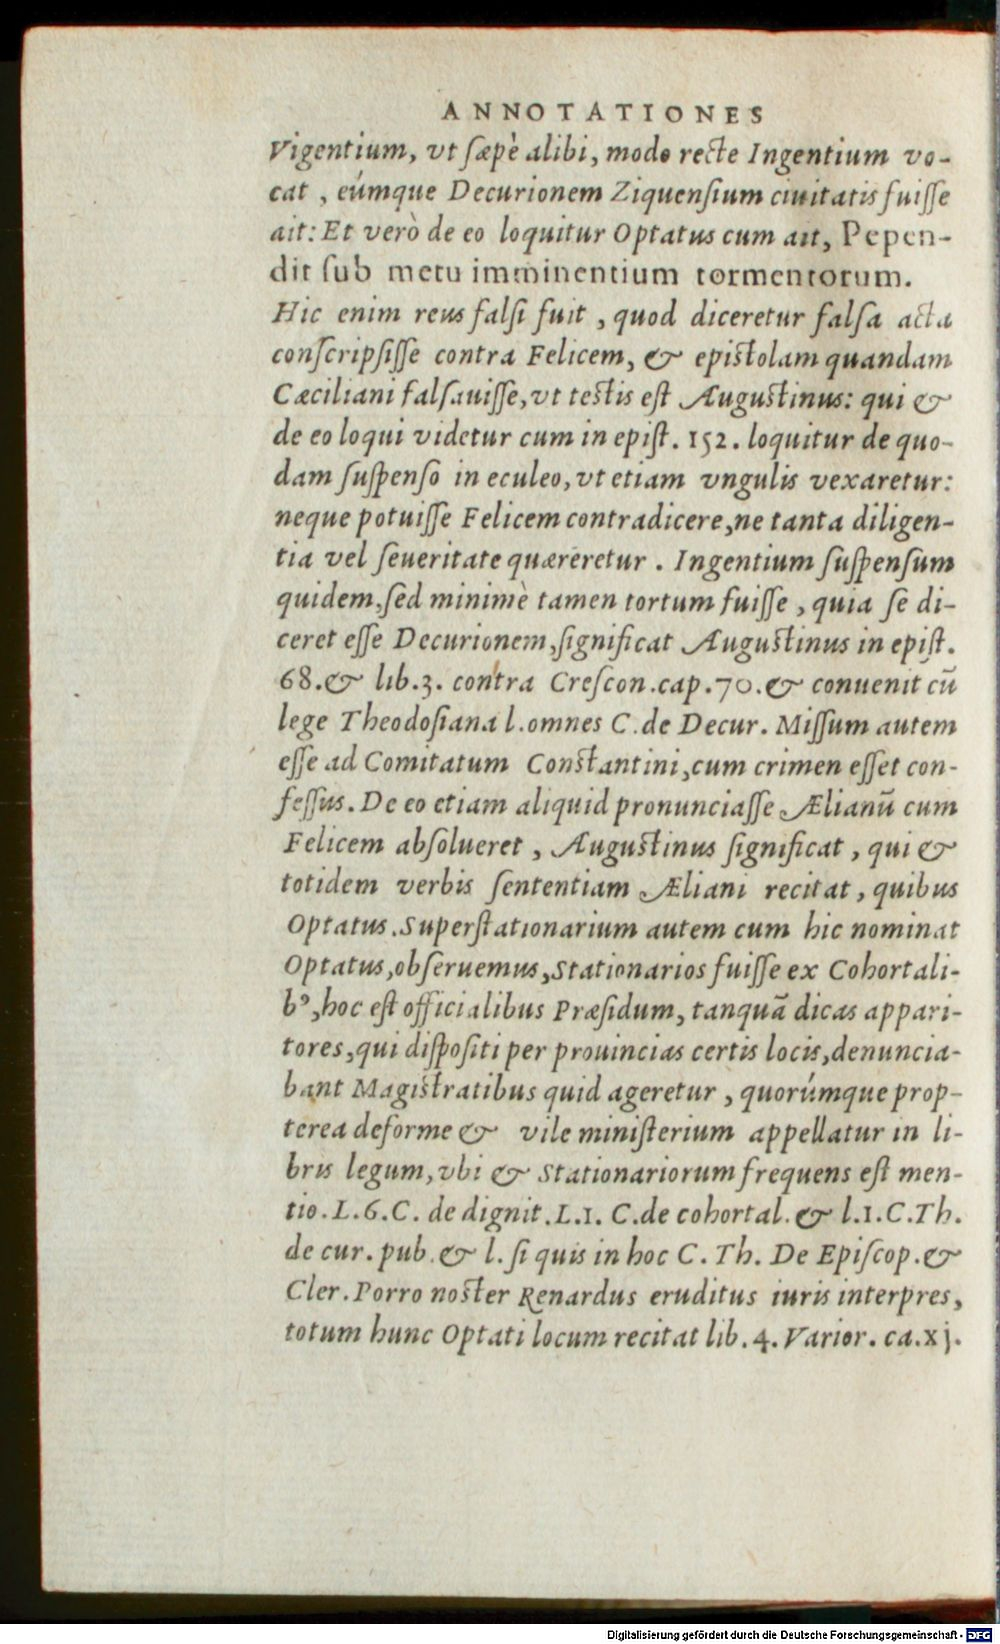 ANNOTATIONES
Vigentium, vt sæpè alibi, modo recte Ingentium vo-
cat, eúmque Decurionem Ziquensium ciuitatis fuiſſe
ait: Et verò de eo loquitur Optatus cum ait, Pepen-
dit ſub metu imminentium tormentorum.
Hic enim reus falſi fuit, quod diceretur falſa acta
conſcripſiſſe contra Felicem, & epiſtolam quandam
Cæciliani falſauiſſe, vt teſtis eſt Auguſtinus: qui &
de eo loqui videtur cum in epiſt. 152. loquitur de quo-
dam ſuſpenſo in eculeo, vt etiam vngulis vexaretur:
neque potuiſſe Felicem contradicere, ne tanta diligen-
tia vel ſeueritate quæreretur. Ingentium ſuſpenſum
quidem, ſed minimè tamen tortum fuiſſe, quia ſe di-
ceret eſſe Decurionem, ſignificat Auguſtinus in epiſt.
68. & lib. 3. contra Creſcon. cap. 70. & conuenit cū
lege Theodoſiana l. omnes C. de Decur. Miſſum autem
eſſe ad Comitatum Conſtantini, cum crimen eſſet con-
feſſus. De eo etiam aliquid pronunciaſſe Ælianū cum
Felicem abſolueret, Auguſtinus ſignificat, qui &
totidem verbis ſententiam Æliani recitat, quibus
Optatus. Superſtationarium autem cum hic nominat
Optatus, obſeruemus, Stationarios fuiſſe ex Cohortali-
bꝰ, hoc eſt officialibus Præſidum, tanquā dicas appari-
tores, qui diſpoſiti per prouincias certis locis, denuncia-
bant Magiſtratibus quid ageretur, quorúmque prop-
terea deforme & vile miniſterium appellatur in li-
bris legum, vbi & Stationariorum frequens eſt men-
tio. L. 6. C. de dignit. L. 1. C. de cohortal. & l. 1. C. Th.
de cur. pub. & l. ſi quis in hoc C. Th. De Epiſcop. &
Cler. Porro noſter Renardus eruditus iuris interpres,
totum hunc Optati locum recitat lib. 4. Varior. ca. xj.
Digitalisierung gefördert durch die Deutsche Forschungsgemeinschaft - DFG